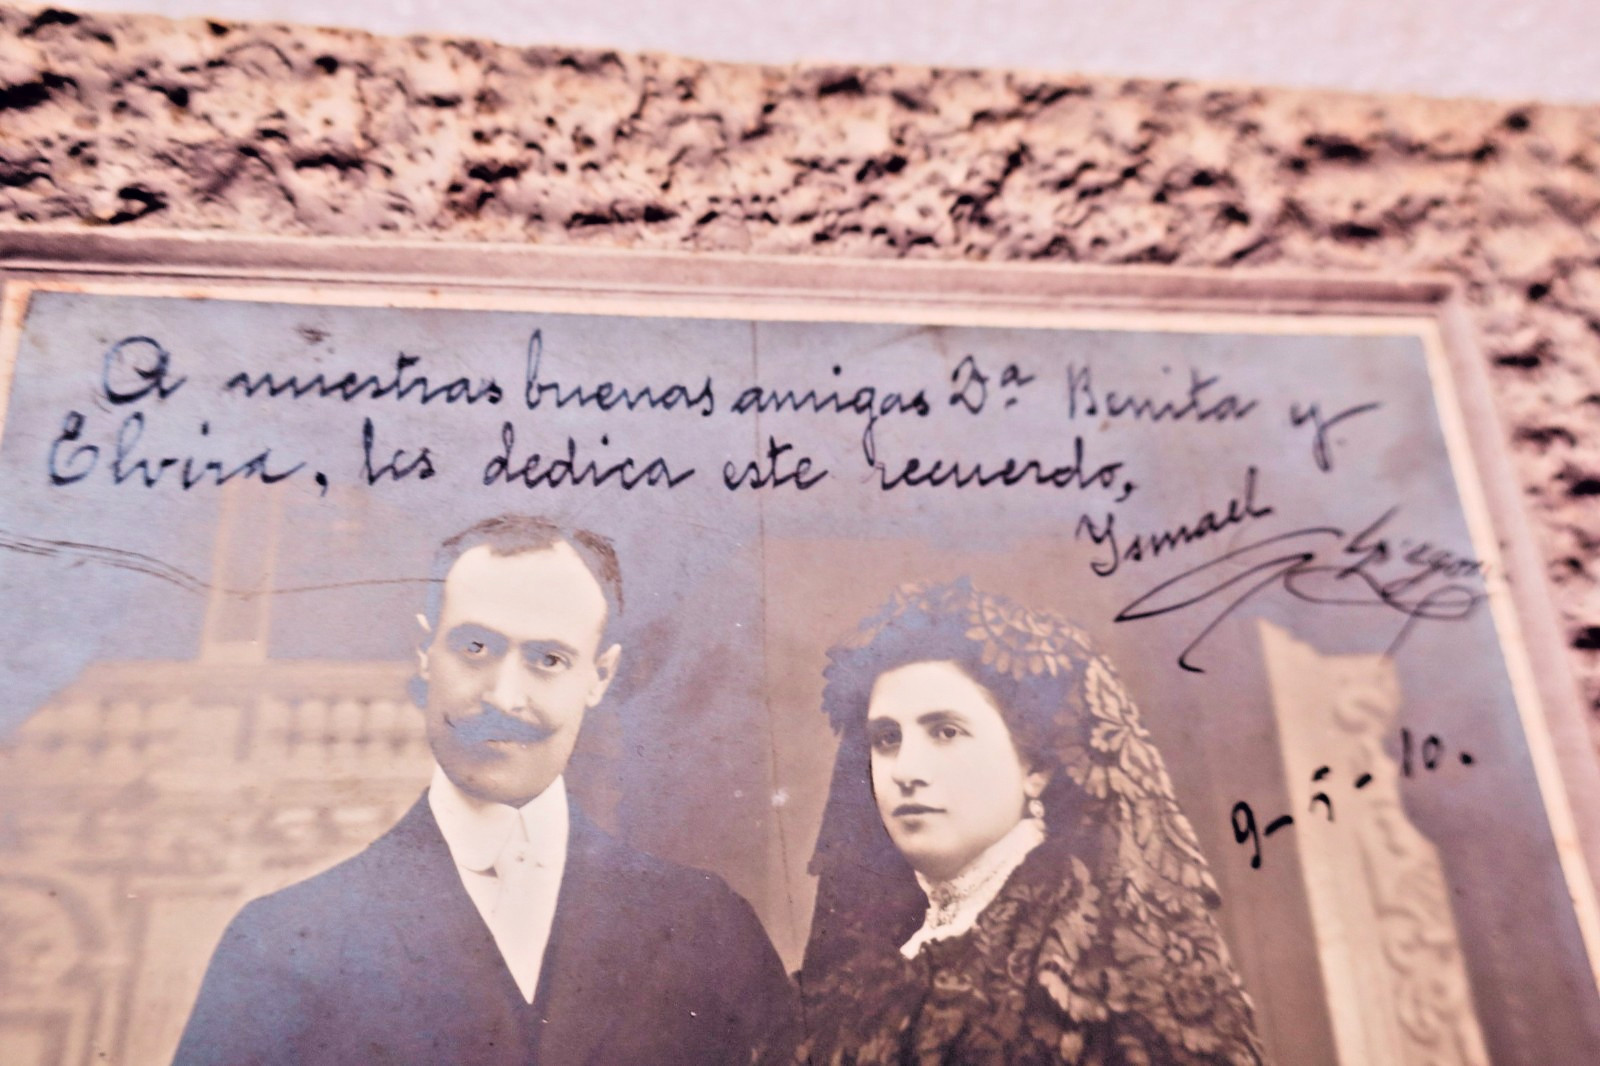 A nuestras buenas amigas Dª Benita y
Elvira, les dedica este recuerdo,
Ysmael
9-5-10.